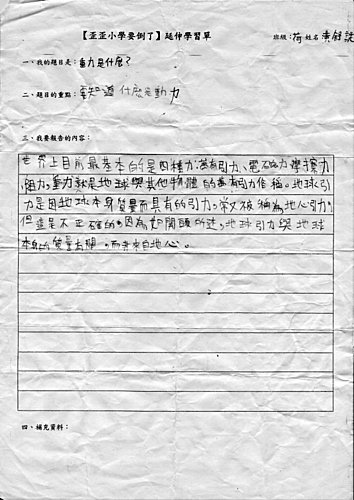 【歪歪小學要倒了】延伸學習單
班級：荷 姓名
一、我的題目是：重力是什麼？
二、題目的重點：要知道什麼是動力
三、我要報告的內容：
世界上目前最基本的是四種力:萬有引力、電磁力、摩擦力
、阻力。重力就是地球與其他物體的萬有引力作稱。地球引
力是因地球本身質量而具有的引力。常又被稱為地心引力。
但這是不正確的。因為如開頭所述,地球引力與地球
本身的質量有關。而非來自地心。
四、補充資料：